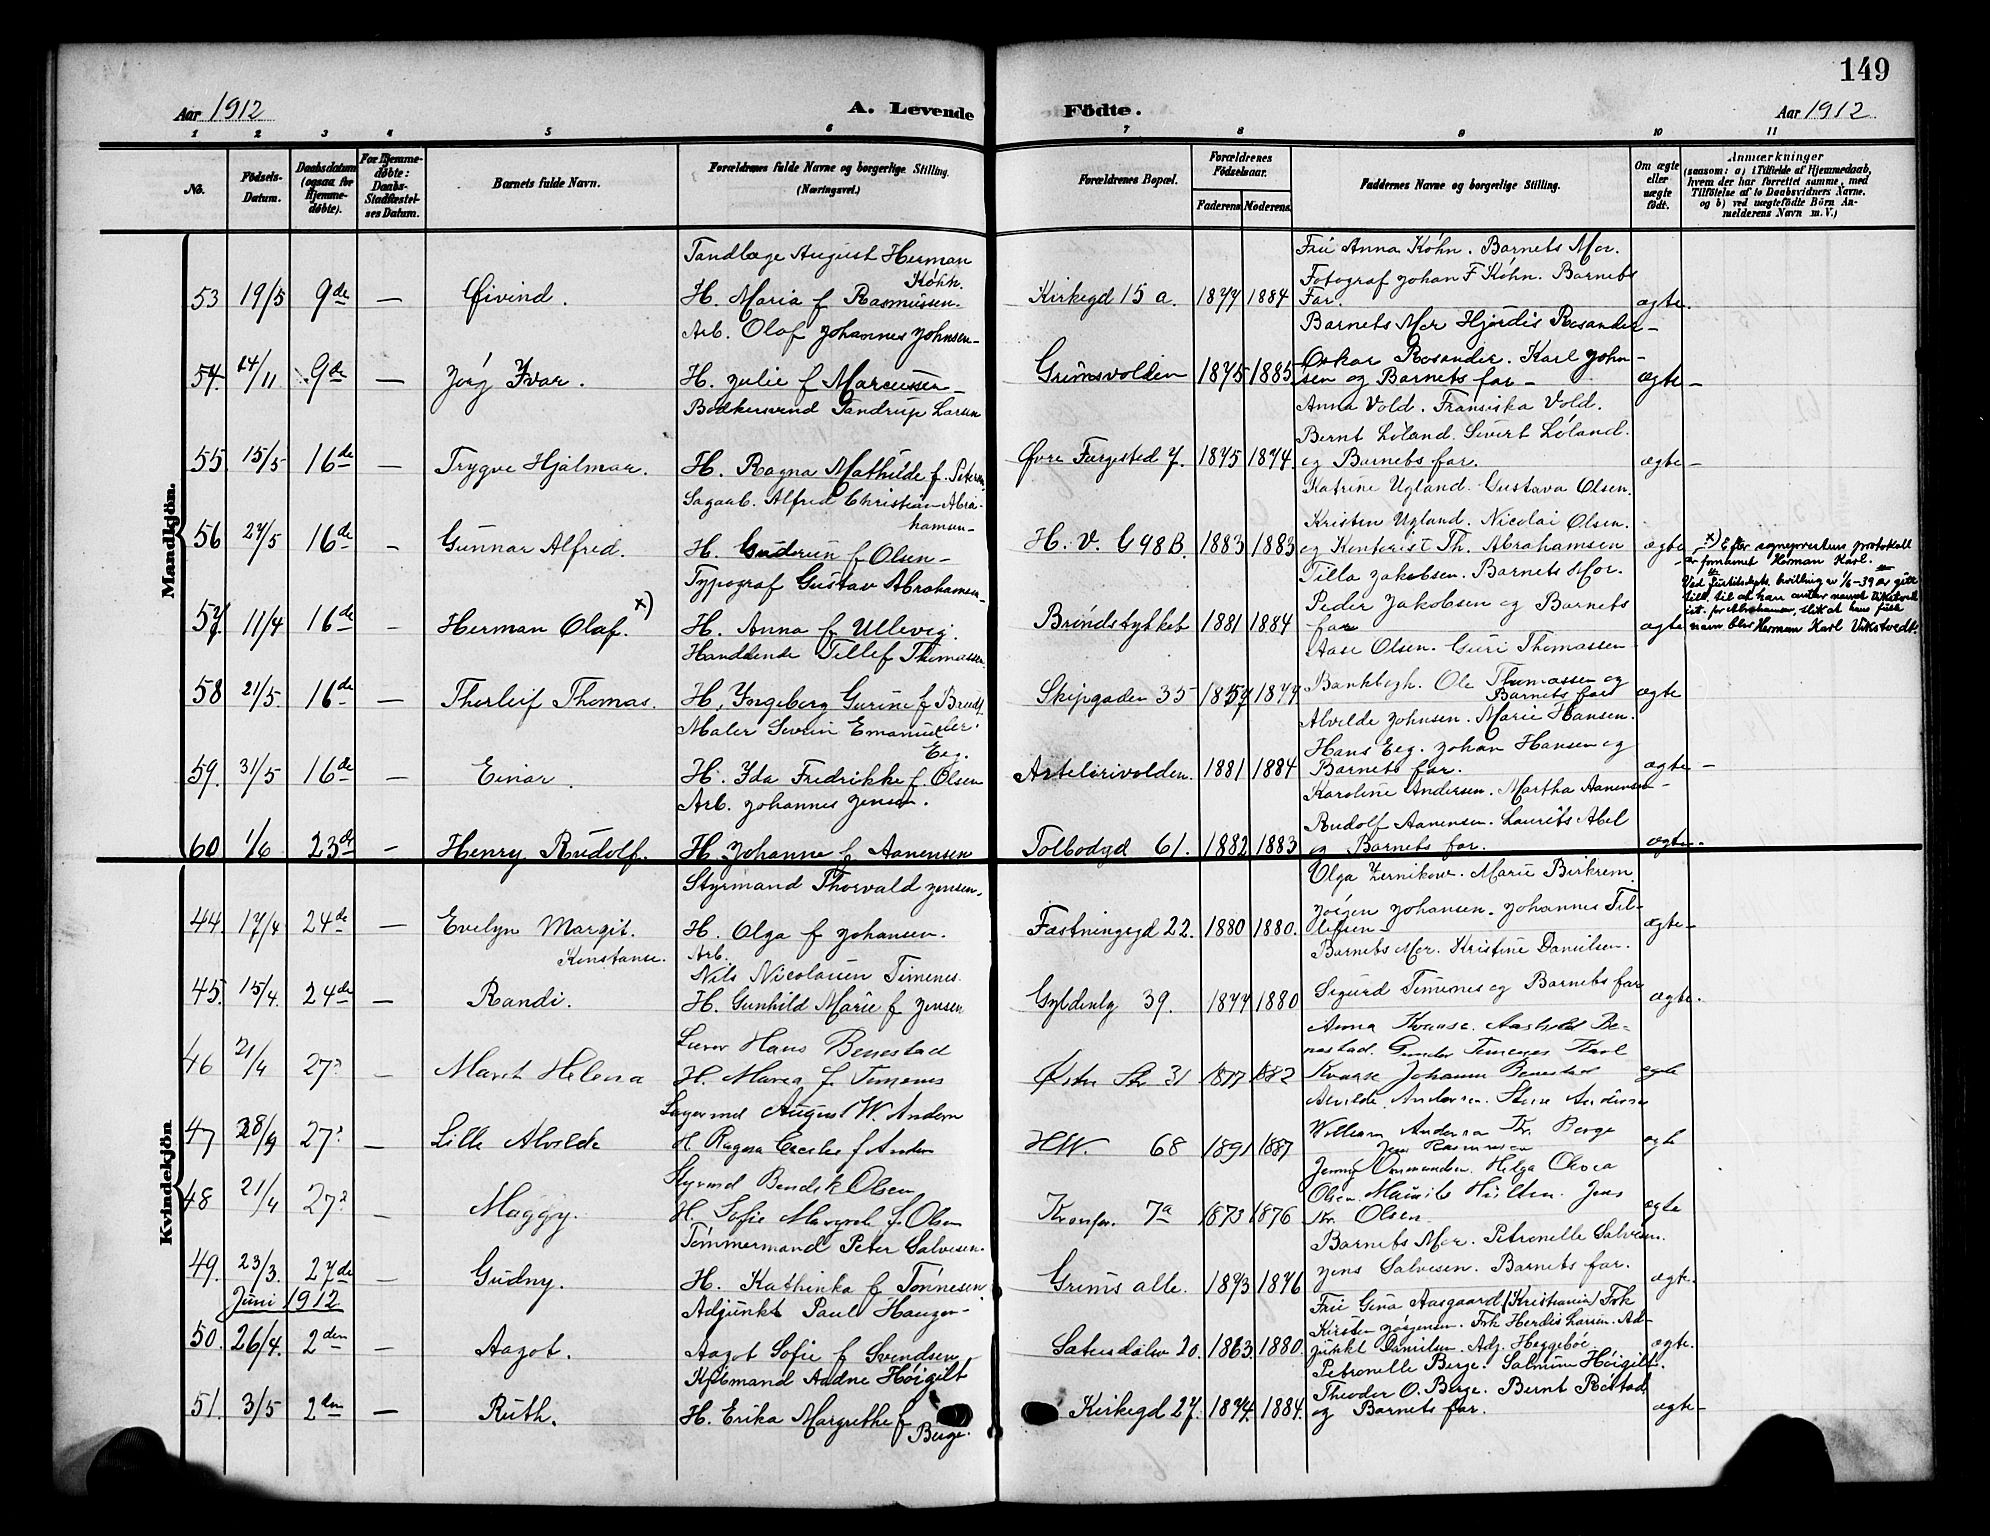 149
Aar 1912
A. Levende
Födte.
Aar 1912
1 2 3 4 5 6 7 8 9 10 11
No.
Födsels-Datum.
Daabsdatum (ogsaa for Hjemme-döbte).
For Hjemme-döbte: Daabs-Stadfæstel-ses Datum.
Barnets fulde Navn.
Forældrenes fulde Navne og borgerlige Stilling. (Næringsvei.)
Forældrenes Bopæl.
Forældrenes Födselsaar.
Faderens Moderens
Faddernes Navne og borgerlige Stilling.
Om ægte eller uægte födt.
Anmærkninger
(saasom: a) i Tilfælde af Hjemmedaab, hvem der har forrettet samme, med Tilföielse af to Daabsvidners Navne. og b) ved uægtefödte Börn An-melderens Navn m. V.)
Mandkjön.
Tandlæge August Herman Køhn.
53 19/5 9de — Øivind. H. Maria f Rasmussen. Kirkegd 15 a. 1877 1884
Frü Anna Køhn. Barnets Mor.
Fotograf Johan F Køhn. Barnets
Far. ægte.
Arb. Olaf Johannes Johnsen—
54. 24/11 9de — Jörg Ivar. H. Julie f Marcussen— Grimsvolden 1875 1885
Barnets Mor Hjördis Rosander—
Oskar Rosander. Karl John-
sen og Barnets far— ægte—
Bødkersvend Tandrup Larsen
55 15/5 16de — Trygve Hjalmar. H. Ragna Mathilde f. Petersen Øvre Færgested 7. 1875 1874
Anna Vold. Fransiska Vold.
Bernt Løland. Sivert Løland.
og Barnets far. ægte—
Sagarb. Alfred Christian Abra-
hamsen—
56 27/5 16de — Gunnar Alfred. H. Gudrun f Olsen— H. V. G 98 B. 1883 1883
Katrine Ugland. Gustava Olsen.
Kristen Ugland. Nicolai Olsen.
og Kontorist Th. Abrahamsen ægte
Typograf Gustav Abrahamsen—
57 11/4 16de — Herman Olaf. x) H. Anna f Ullevig. Brøndstykket 1881 1884
Tilla Jakobsen. Barnets Mor.
Peder Jakobsen og Barnets
far ægte
x) Efter sogneprestens protokoll
er fornavnet Herman Karl.
navn blir Herman Karl Vikstvedt.
Handlende Tellef Thomassen
58 21/5 16de — Thorleif Thomas. H. Ingeborg Gurine f Skipgaden 35 1857 1877
Aase Olsen. Guri Thomassen
Bankbogh. Ole Thomassen og
Barnets far ægte
Maler Severin Emanuel
Eeg.
59. 31/5 16de — Einar. H. Ida Fredrikke f. Olsen Artelerivolden. 1881 1884
Alvilde Johnsen. Marie Hansen.
Hans Eeg. Johan Hansen og
Barnets far. ægte—
Arb. Johannes Jensen.
60 1/6 23de — Henry Rudolf. H. Johanne f Aanensen Tolbodgd 61. 1882 1883
Karoline Andersen. Martha Aanensen—
Rudolf Aanensen. Laurits Abel
og Barnets far. ægte.
Kvindekjön.
Styrmand Thorvald Jensen.
44 17/4 24de — Evelyn Margit. Konstanse. H. Olga f Johansen. Fæstningsgd 22. 1880 1880.
Olga Zernikow. Marie Birkrem.
Jörgen Johansen. Johannes Til-
lefsen— ægte—
Arb. Nils Nicolaisen Timenes.
45. 15/4. 24de — Randi. H. Gunhild Marie f Jensen Gyldenlg 39. 1877 1880
Barnets Mor. Kristine Danielsen.
Sigurd Timenes og Barnets far ægte.
Hans Benestad
46 21/4 27? — Marit Helena H. Marea f. Timenes Østre Str 31 1877 1882
Anna Kvaase. Aashild Be-
nestad. Gunder Timenes Karl
Kvaase Johanne Benestad ægte
August W. Andersen
47 28/9 27? — Lille Alvilde H. Ragna f Andersen H.W. 68 1891 1887
Alvilde Andersen.
William Andersen Th. Berge
Jens Rasmussen ægte
Styrmd Bendik Olsen
48 21/4 27? — Maggy. H. Sofie Margrete f. Olsen 7a 1873 1876
Jenny Helga
Olsen. Jens
Kr. Olsen. ægte
Tømmermand Peter Salvesen.
49. 23/3. 27de — Gudny. H. Kathinka f Tønnesen Grims alle. 1873 1876
Barnets Mor. Petronelle Salvesen.
Jens Salvesen. Barnets far. ægte.
Juni 1912
Adjunkt Paul Hauger—
50. 26/4. 2den — Aagot. Aagot Sofie f Svendsen Sætersdalen 20. 1863. 1880.
Frü Gina Aasgaard (Kristiania) Frk
Kirsten Jörgensen. Frk Herdis Larsen. Ad-
junkt Danielsen. Adj. Heggebøe. ægte.
Kjøbmand Aadne Høigilt
51. 3/5 2den — Ruth. H. Erika Margrethe f Berge. Kirkegd 27. 1874. 1884.
Petronelle Berge. Salmine Høigilt.
Theodor O. Berge. Bernt Røstad
og Barnets far. ægte—